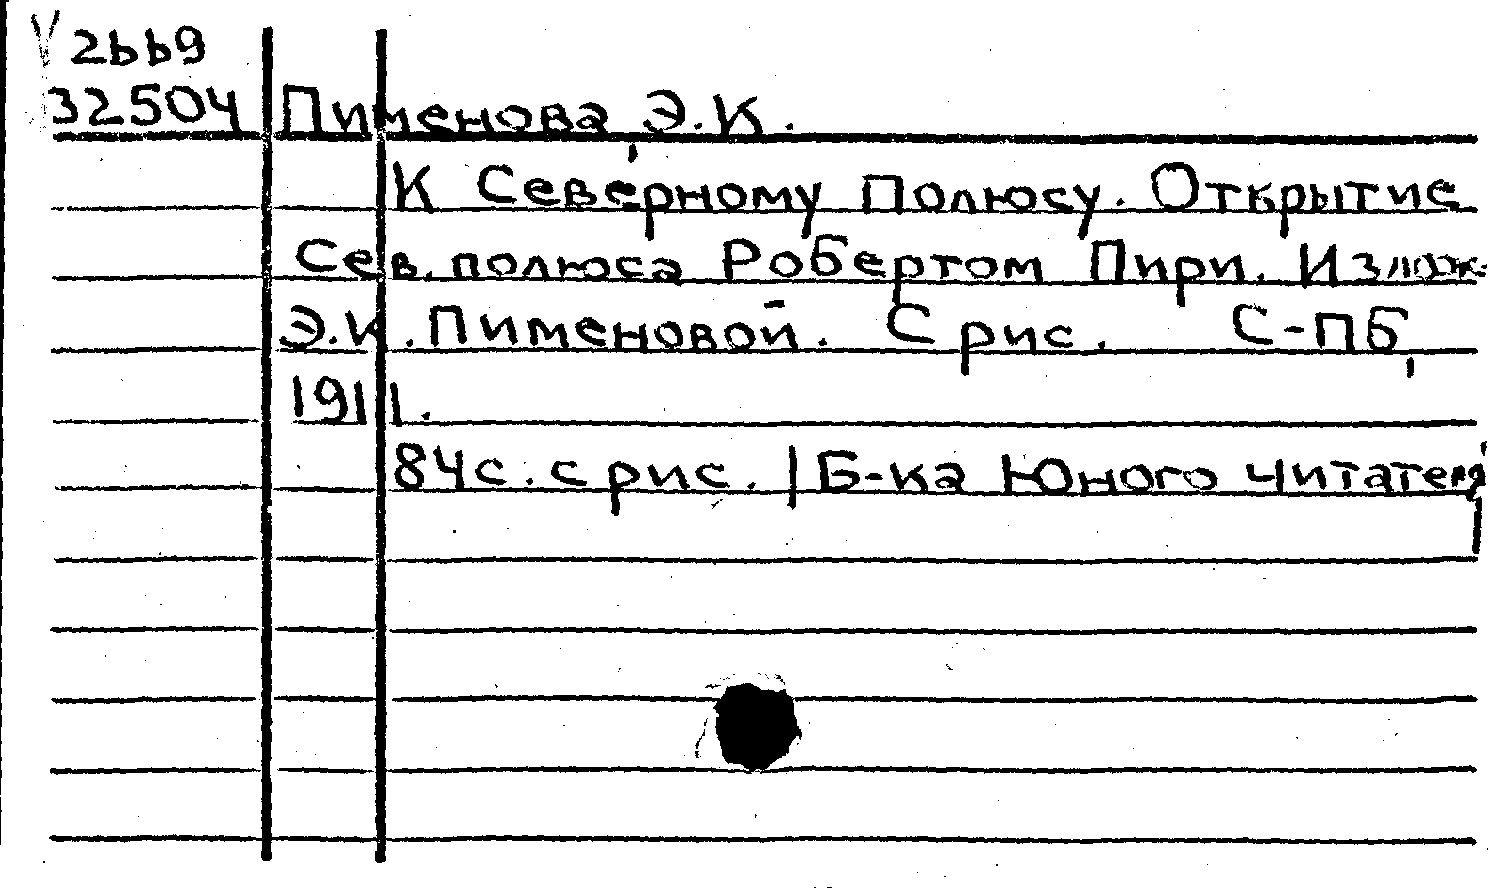 2bb9
32504 Пименова Э.К.
К Северному Полюсу. Открытие
Сев. полюса Робертом Пири. Излож.
Э.К. Пименовой. С рис. С-ПБ,
1911.
84с. с рис. | Б-ка Юного читателя |